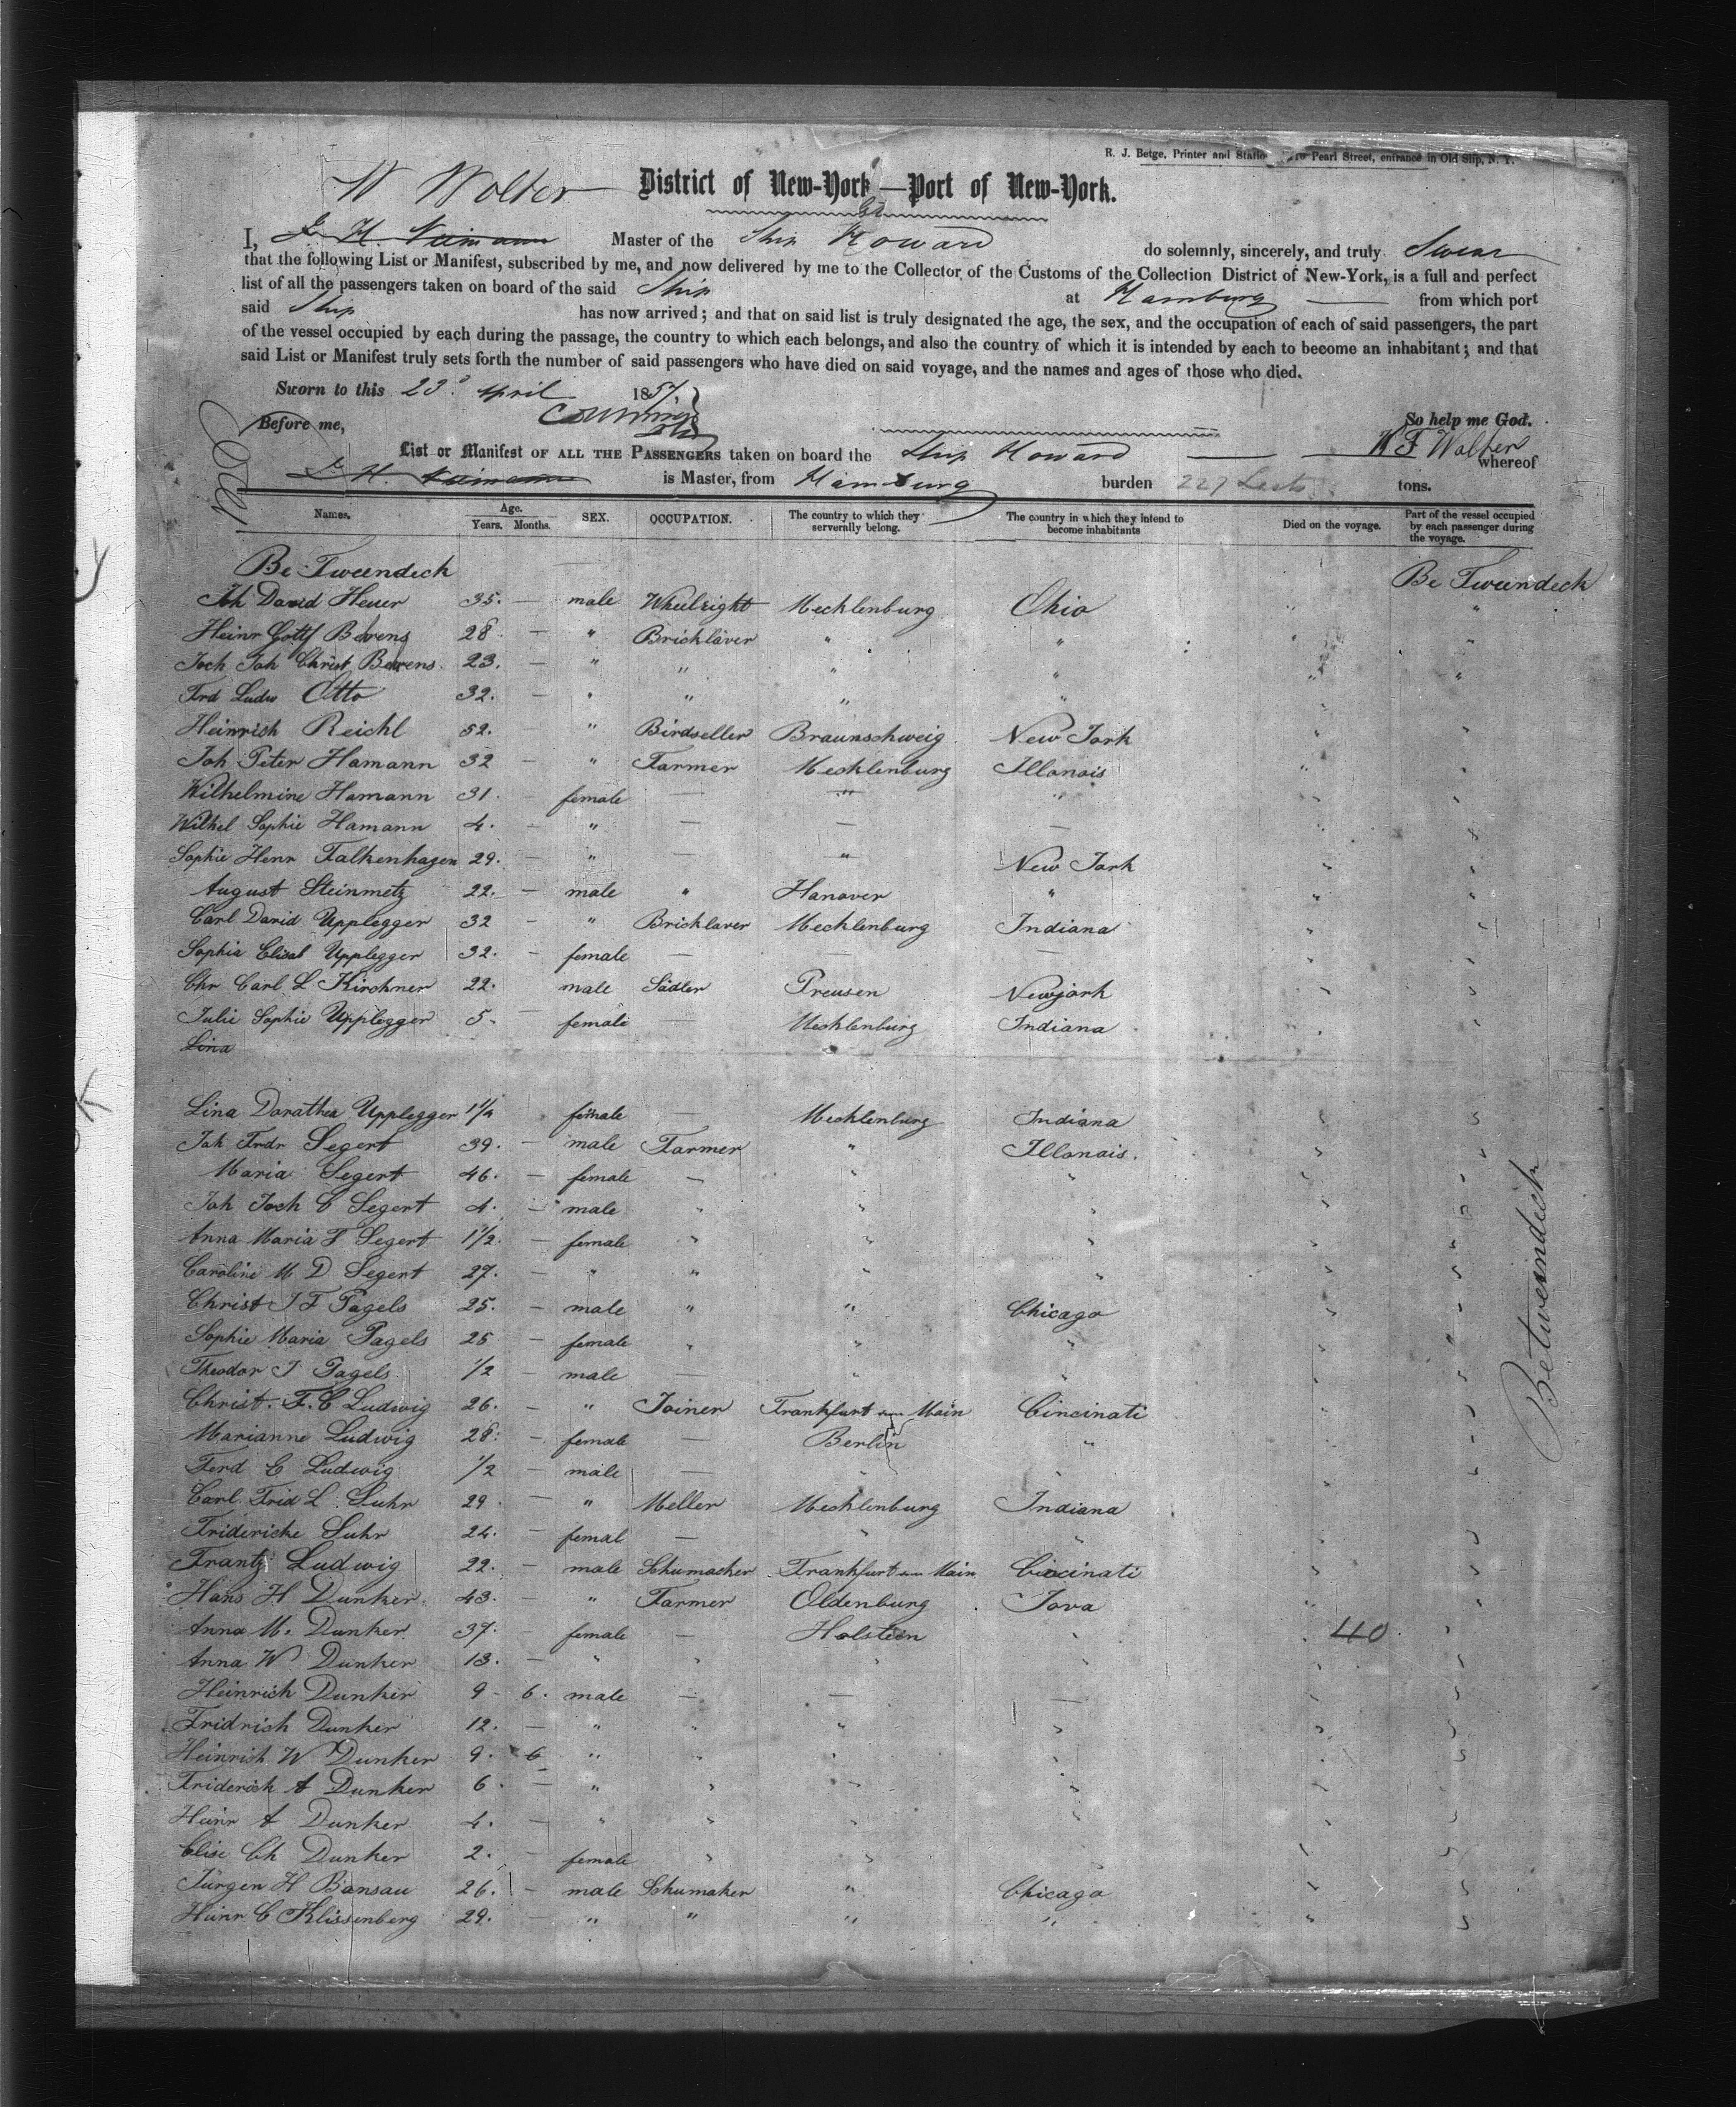 R. J. Betge, Printer and Statio 116 Pearl Street, entrance in Old Slip, N. Y.
W Wolter District of New-York—Port of New-York.
I, J. H. Neimann Master of the Ship Howard do solemnly, sincerely, and truly Swear
that the following List or Manifest, subscribed by me, and now delivered by me to the Collector of the Customs of the Collection District of New-York, is a full and perfect
list of all the passengers taken on board of the said Ship at Hamburg — from which port
said Ship has now arrived; and that on said list is truly designated the age, the sex, and the occupation of each of said passengers, the part
of the vessel occupied by each during the passage, the country to which each belongs, and also the country of which it is intended by each to become an inhabitant; and that
said List or Manifest truly sets forth the number of said passengers who have died on said voyage, and the names and ages of those who died.
Sworn to this 23d April 1857.
Before me, So help me God.
W F Wolter
List or Manifest OF ALL THE PASSENGERS taken on board the Ship Howard — whereof
J. H. Neimann is Master, from Hamburg burden 227 Lasts tons.
Names. Age. Years. Months. SEX. OCCUPATION. The country to which they serverally belong. The country in which they intend to become inhabitants Died on the voyage. Part of the vessel occupied by each passenger during the voyage.
Be Tweendeck Be Tweendeck
Joh David Heuer 35. — male Wheelright Mecklenburg Ohio " "
Heinr Gottf Behrens 28 — " Brickläver " " " "
Joch Joh Christ Behrens 23. — " " " " " "
Frd Ludw Otto 32. — " " " " "
Heinrich Reichl 52. — " Birdseller Braunschweig New Jork " "
Joh Peter Hamann 32 — " Farmer Mecklenburg Illonois " "
Wilhelmine Hamann 31. — female — " " " "
Wilhel Sophie Hamann 4. — " — — — " "
Sophie Henr Falkenhagen 29. — " — " New Jork " "
August Steinmetz 22. — male " Hanover " " "
Carl David Upplegger 32 — " Bricklaver Mecklenburg Indiana " "
Sophia Elisab Upplegger 32. — female — — — " "
Chr Carl L Kirchner 22. male Sadler Preusen Newjork " "
Julie Sophie Upplegger 5. — female — Mecklenburg Indiana " "
Lina
Lina Dorathea Upplegger 1 1/4 female — Mecklenburg Indiana " "
Joh Frdr Segert 39. — male Farmer " Illonois. " "
Maria Segert 46. — female — " " " "
Joh Joch C Segert 4. — male " " " " "
Anna Maria F Segert 1 1/2. — female " " " " "
Caroline M D Segert 27. — " " " " " "
Christ J F Pagels 25. — male " " Chicago " "
Sophie Maria Pagels 25 — female " " " " "
Theodor J Pagels 1/2 — male — " " " "
Christ. F. C Ludwig 26. — " Joiner Frankfurt am Main Cincinati " "
Marianne Ludwig 28. — female — Berlin " " "
Ferd C Ludwig 1/2 — male — " " " "
Carl Frid L Suhr 29 — " Meller Mecklenburg Indiana " "
Fridericke Suhr 24. — femal — " " " "
Frantz Ludwig 22. — male Schumacher Frankfurt am Main Cincinati " "
Hans H Dunker 43. — " Farmer Oldenburg Jova " "
Anna M. Dunker 37. — female — Holstein " 40 "
Anna W Dunker 13. — " " " " " "
Heinrich Dunker 9 6. male — — — " "
Fridrich Dunker 12. — " " " " " "
Heinrich W Dunker 9. 6 " " " " " "
Friderick A Dunker 6. — " " " " " "
Heinr A Dunker 4. — " " " " "
Elise Ch Dunker 2. — female " " " " "
Jürgen H Bansau 26. — male Schumaker " Chicago " "
Heinr C Klissenberg 29. — " " " " " "
Betweendeck